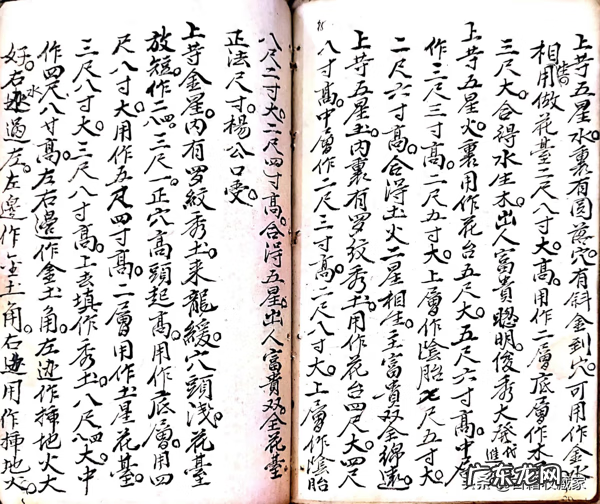 上芐五星水裏有圓萡穴有斜金到穴可用作金水
相做花臺二尺八寸大高用作二層底層作木
三尺大合得水生木出人富貴聰明俊秀大發
上芐五星火裏用作花台五尺大五尺六寸高中
作二尺三寸高二尺五寸大上層作陰胎七尺五寸大
二尺六寸高合淂土火二星相生主富貴双全綿遠
上芐五星土内裏有罗紋秀土用作花台四尺大四尺
八寸高中層作二尺三寸高二尺八寸大上層作陰胎
八尺二寸大二尺四寸高合淂五星出人富貴双全花臺
正法尺寸楊公口受
上芐金星内有罗紋秀土来龍緩穴頭浅花臺
放短作二四三尺一正穴高頭起高用作底層用四
尺八寸大用作五尺四寸高二層用作土星花臺
三尺八寸大三尺八寸高上去填作秀土八尺四大中
作四尺八寸高左右邉作金土角左边作掃地火大
好右水边過左左邉作金土角右边用作掃地火
广东龙网